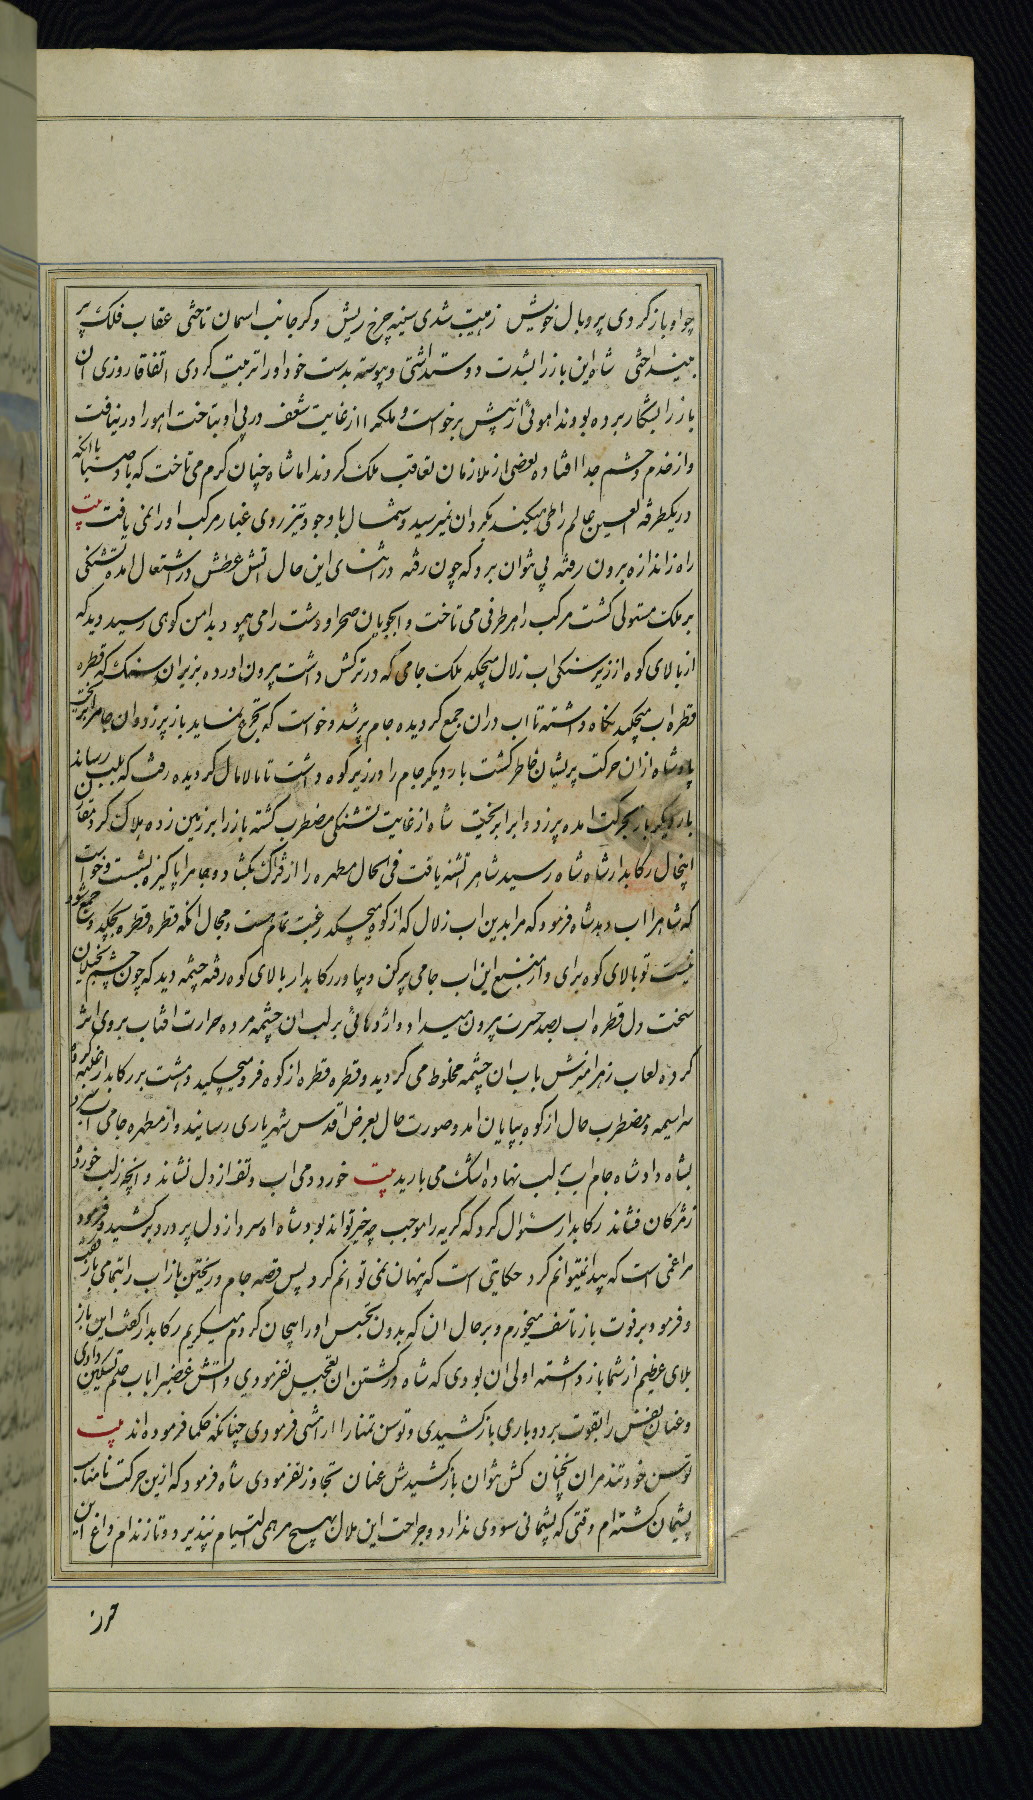 چو او باز کردی پر و بال خویش ز هیبت شدی سینه چرخ ریش و کر جانب اسمان تاختی عقاب فلک پر
بینداختی شاه این باز را بشدت دوست داشتی و پیوسته بدست خود او را تربیت کردی اتفاقا روزی ان
باز را بشکار برده بودند اهوئی از پیش برخواست و ملک از غایت شعف در پی او بتاخت اهو را در نیافت
و از خدم و حشم جدا افتاده بعضی از ملازمان تعاقب ملک کردند اما شاه چنان کرم می تاخت که باد صبا باانکه
در یکطرفة العین عالم را طی میکند بکرد ان نمیرسید و شمال با وجود تیز روی غبار مرکب او را نمی یافت بیت
راه ز اندازه برون رفته پی نتوان برد که چون رفته در اثنای این حال اتش عطش در اشتعال امده تشنکی
بر ملک مستولی کشت مرکب را هر طرفی می تاخت و ابجویان صحرا و دشت را می پیمود بدامن کوهی رسید دید که
از بالای کوه از زیر سنکی اب زلال میچکد ملک جامی که در ترکش داشت بیرون اورده بزیر ان سنک که قطره
قطره اب میچکید نکاه داشته تا اب دران جمع کردیده جام پر شد و خواست که تجرع نماید باز پر زد و ان جام را بریخت
پادشاه از ان حرکت پریشان خاطر کشت بار دیکر جام را در زیر کوه داشت تا مالامال کردیده رفت که بلب رساند
بار دیکر باز بحرکت امده پر زد و اب را بریخت شاه از غایت تشنکی مضطرب کشته باز را بر زمین زده هلاک کرد مقارن
اینحال رکابدار شاه رسید شاه را تشنه یافت فی الحال مطهره را از فتراک بکشاد و جام را پاکیزه بشست و خواست
که شاه را اب دهد شاه فرمود که مرا بدین اب زلال که از کوه میچکد رغبت تمام هست و مجال انکه قطره قطره بچکد و جمع شود
نیست تو بالای کوه برای و از منبع این اب جامی پر کن و بیاور رکابدار بالای کوه رفته چشمه دید که چون چشم بخیلان
سخت دل قطره اب بصد حسرت بیرون میداد و اژدهائی بر لب ان چشمه مرده حرارت افتاب بروی اثر
کرده لعاب زهر امیزش باب ان چشمه مخلوط می کردید و قطره قطره از کوه فرو میچکید دهشت بر رکابدار غلبه کرد
سراسیمه و مضطرب حال از کوه بپایان امد و صورت حال بعرض اقدس شهریاری رسانید و از مطهره جامی اب سرد
بشاه داد شاه جام اب بلب نهاده اشک می بارید بیت خورد دمی اب و تف از دل نشاند و انچه ز لب خورد
ز مژکان فشاند رکابدار سئوال کرد که کریه را موجب چه چیز تواند بود شاه اه سرد از دل پر درد برکشید و فرمود
مرا غمی است که پیدا نمیتوانم کرد حکایتی است که پنهان نمی توانم کرد پس قصه جام و ریختن باز اب را بتمامی باز کفت
و فرمود بر فوت باز تاسف میخورم و بر حال ان که بدون تجسس او را بیجان کردم میکریم رکابدار کفت این باز
بلای عظیم از شما باز داشته اولی ان بودی که شاه در کشتن ان تعجیل نفرمودی و اتش غضب را باب حلم تسکین دادی
و عنان نفس را بقوت بردباری باز کشیدی و توسن تمنا را ارمشی فرمودی چنانکه حکما فرموده اند بیت
توسن خود تند مران انچنان کش نتوان باز کشیدش عنان تجاوز نفرمودی شاه فرمود که ازین حرکت نامناسب
پشیمان کشته ام وقتی که پشیمانی سودی ندارد و جراحت این ملال بهیچ مرهمی التیام نپذیرد و تا زنده ام داغ این
حزن